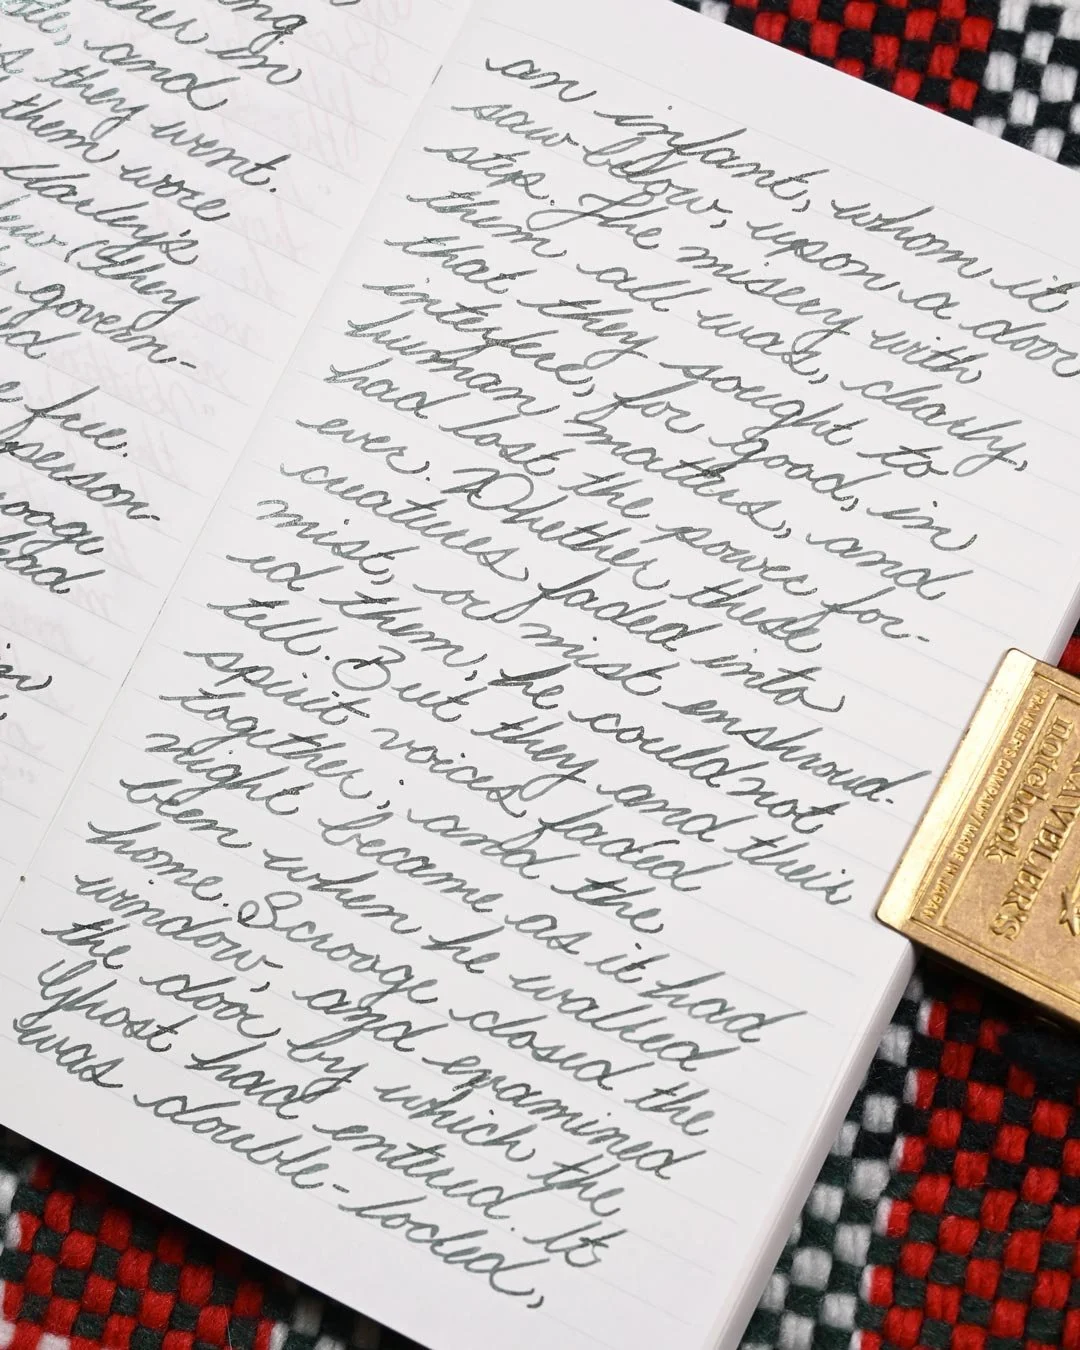 ng
ther in
te, and
s they went.
them wore
Marley's
few (they
y govern-
nd
e free.
person-
rooge
had
in
an infant, whom it
saw below, upon a door
step. The misery with
them all was, clearly,
that they sought to
interfere, for good, in
human matters, and
had lost the power for-
ever. Whether these
creatures faded into
mist, or mist enshroud-
ed them, he could not
tell. But they and their
spirit voices faded
together; and the
night became as it had
been when he walked
home. Scrooge closed the
window, and examined
the door by which the
Ghost had entered. It
was double-locked,
TRAVELER'S
notebook
TRAVELER'S COMPANY / MADE IN JAPAN